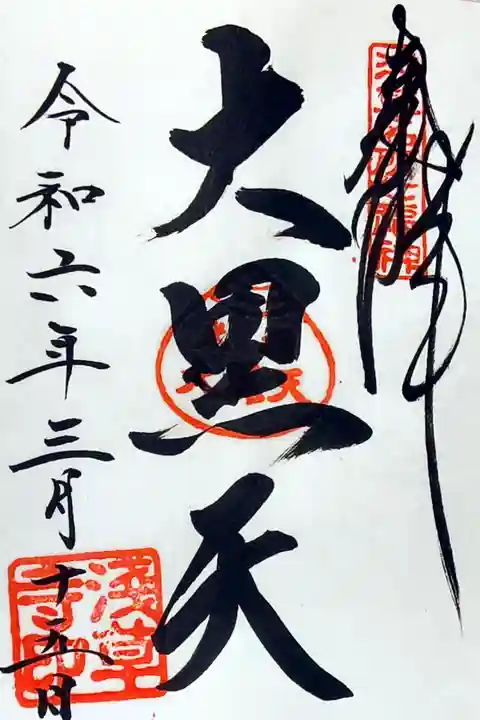 奉拝
大黒天
令和六年三月十九日
浅草寺印